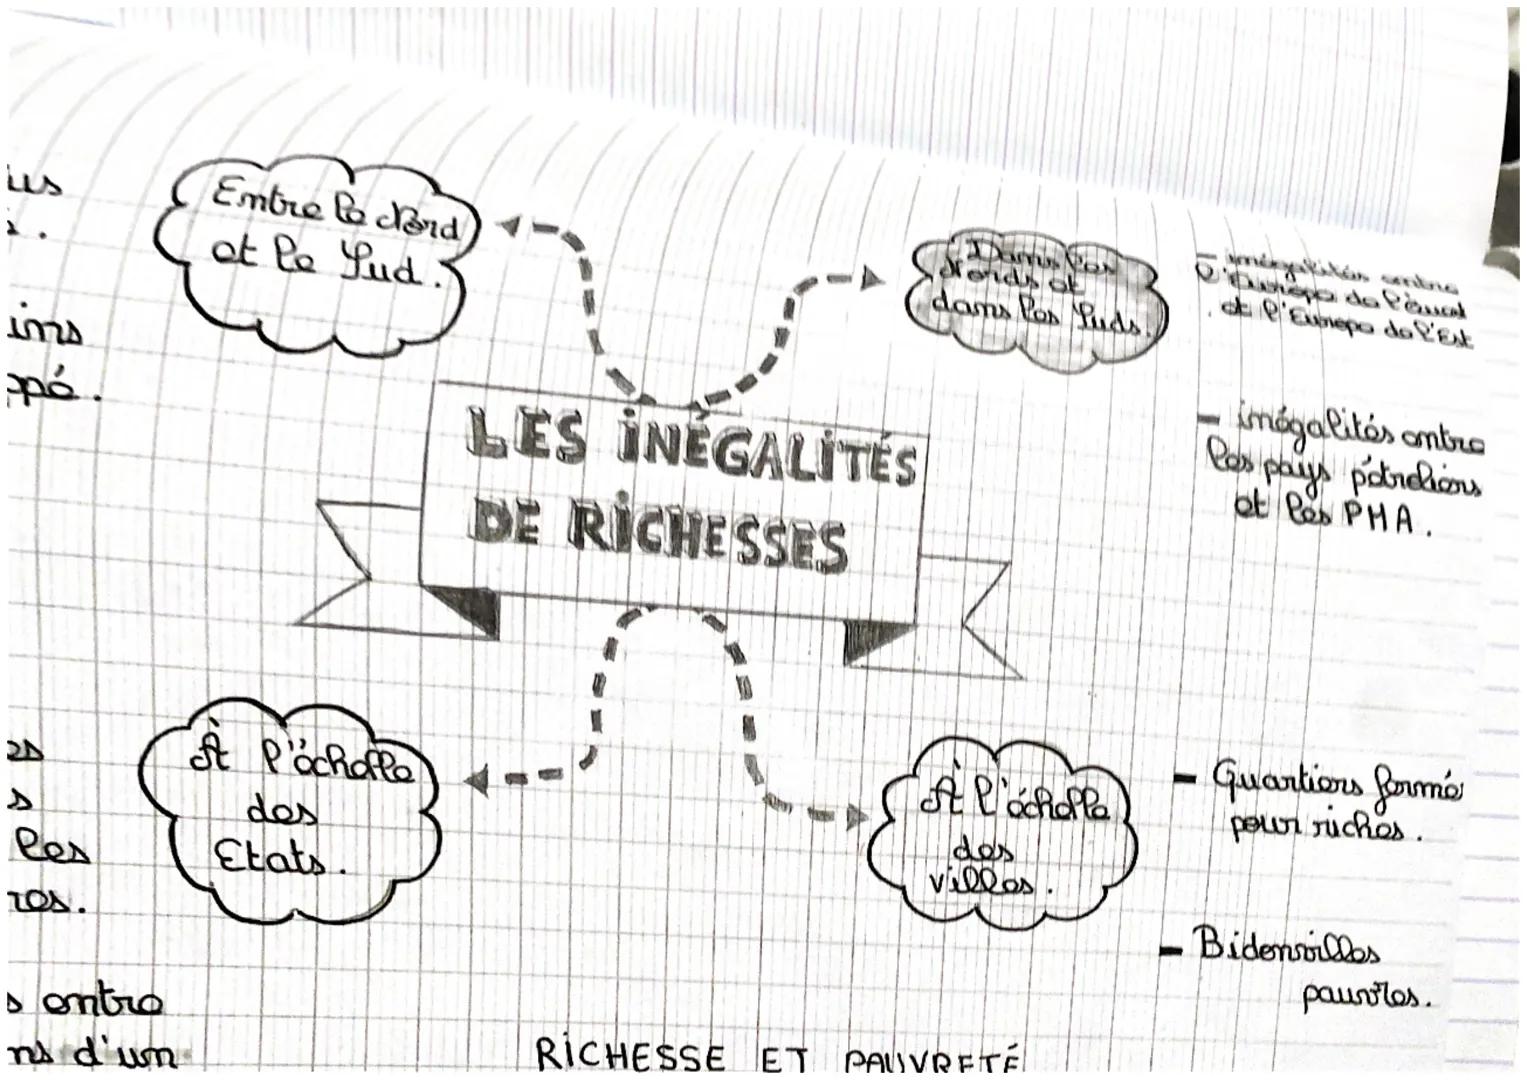 us
Entre le Nord
et le Sud.
ins
ppé.
Dans les
Nords et
dans les Suds.
- inégalités entre
l'Europe de l'Ouest
et l'Europe de l'Est
- inégalités entre
les pays pétroliers
et les PMA.
LES INÉGALITÉS
DE RICHESSES
es
s
les
res.
À l'échelle
des
Etats.
À l'échelle
des
villes.
- Quartiers fermé
pour riches.
- Bidonvilles
pauvres.
s entre
ns d'un
RICHESSE ET PAUVRETÉ